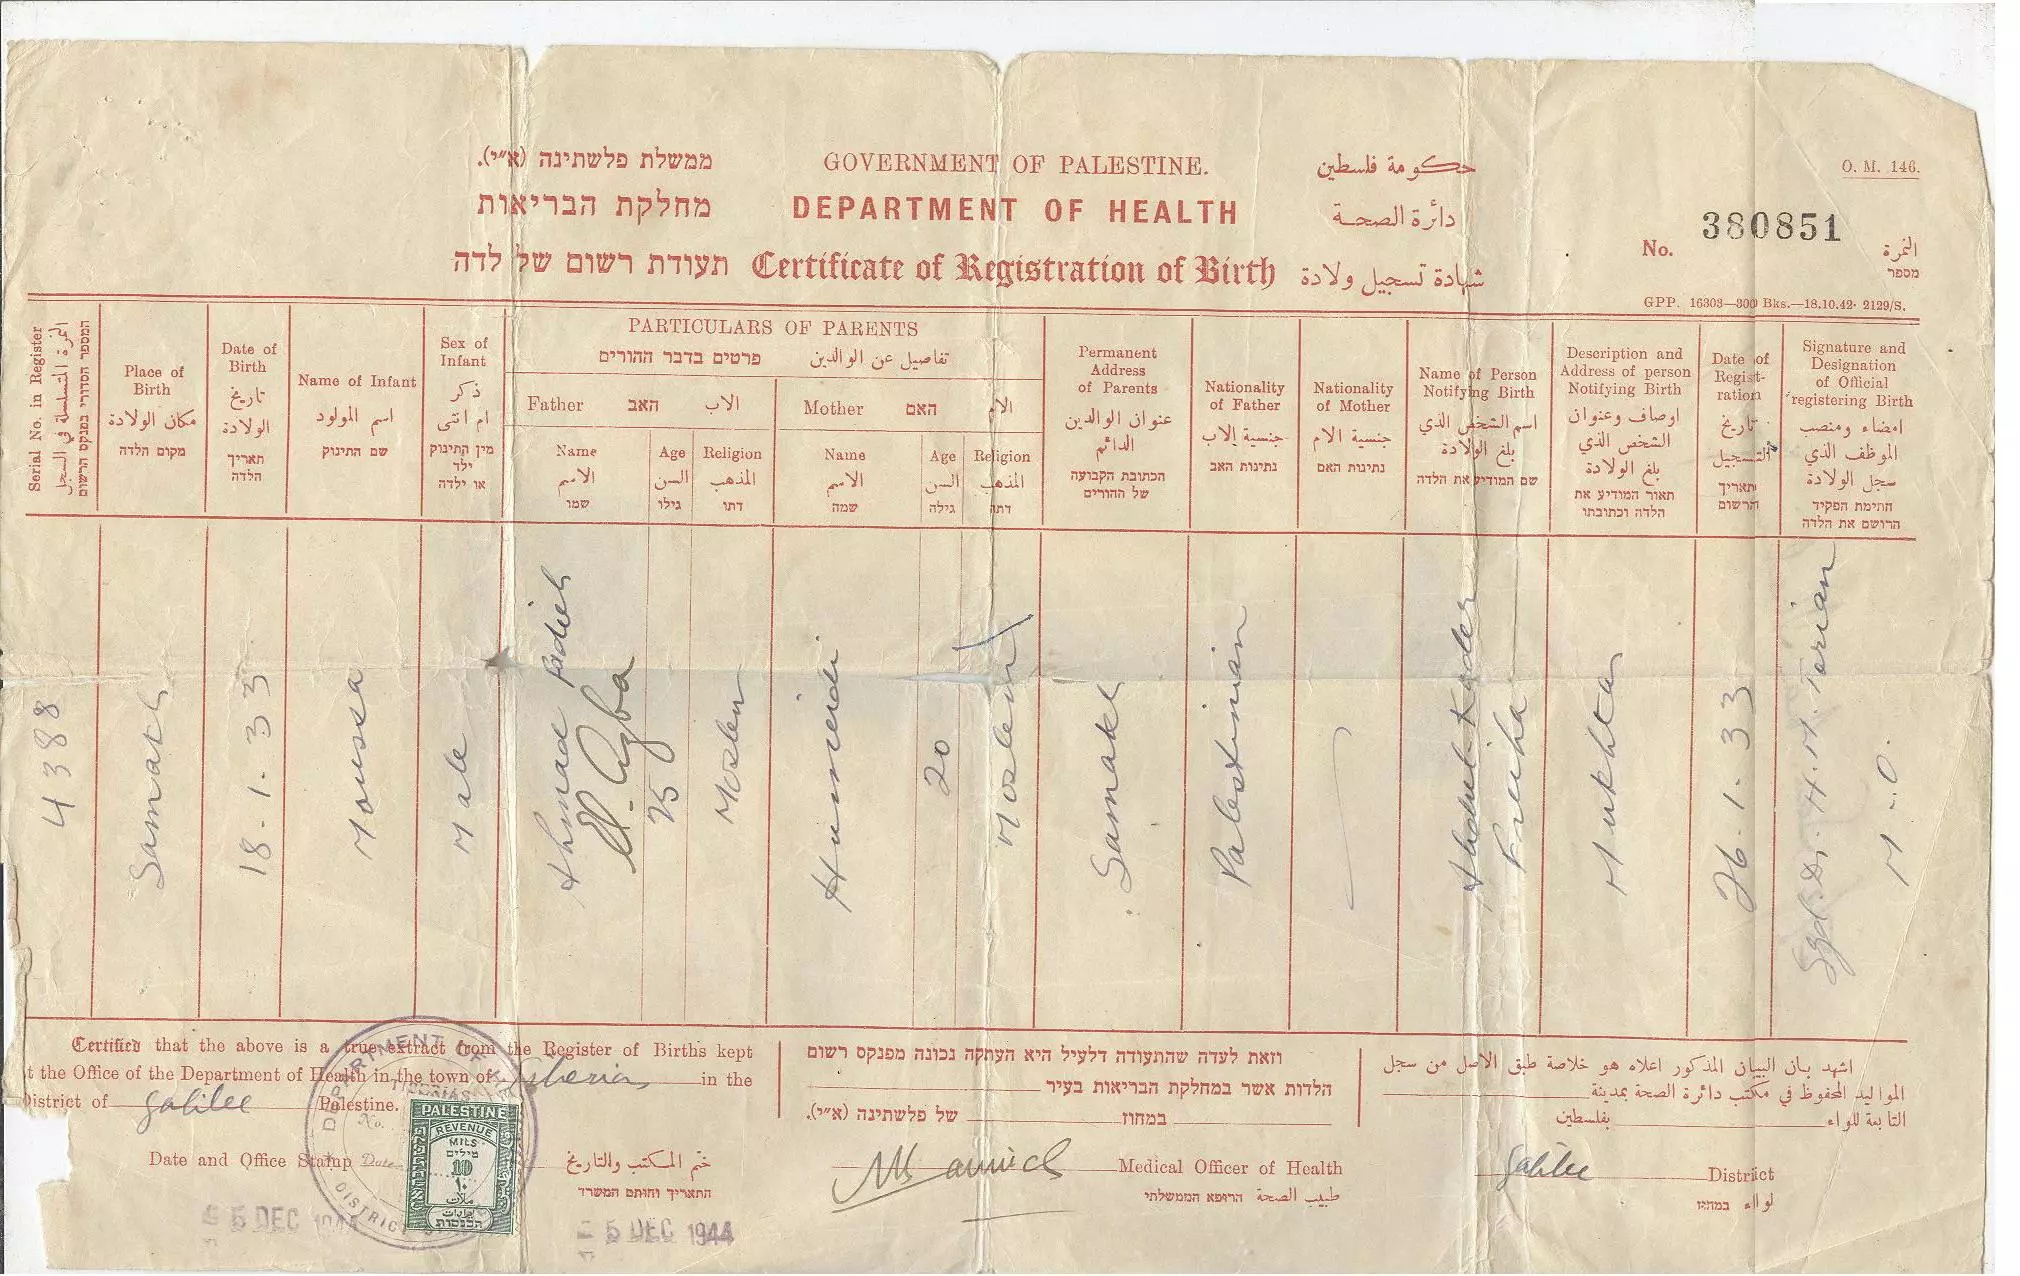 ממשלת פלשתינה (א״י). GOVERNMENT OF PALESTINE. حكومة فلسطين
O. M. 146.
מחלקת הבריאות DEPARTMENT OF HEALTH دائرة الصحة
No. 380851 النمرة
מספר
תעודת רשום של לדה Certificate of Registration of Birth شهادة تسجيل ولادة
GPP. 16303—300 Bks.—18.10.42- 2129/S.
Serial No. in Register
النمرة المتسلسلة في السجل
המספר הסדורי בפנקס הרשום
Place of
Birth
مكان الولادة
מקום הלדה
Date of
Birth
تاريخ
الولادة
תאריך
הלדה
Name of Infant
اسم المولود
שם התינוק
Sex of
Infant
ذكر
ام انثى
מין התינוק
ילד
או ילדה
PARTICULARS OF PARENTS
פרטים בדבר ההורים تفاصيل عن الوالدين
Father האב الاب
Name
الاسم
שמו
Age
السن
גילו
Religion
المذهب
דתו
Mother האם الام
Name
الاسم
שמה
Age
السن
גילה
Religion
المذهب
דתה
Permanent
Address
of Parents
عنوان الوالدين
الدائم
הכתובת הקבועה
של ההורים
Nationality
of Father
جنسية الاب
נתינות האב
Nationality
of Mother
جنسية الام
נתינות האם
Name of Person
Notifying Birth
اسم الشخص الذي
بلغ الولادة
שם המודיע את הלדה
Description and
Address of person
Notifying Birth
اوصاف وعنوان
الشخص الذي
بلغ الولادة
תאור המודיע את
הלדה וכתובתו
Date of
Regist-
ration
تاريخ
التسجيل
תאריך
הרשום
Signature and
Designation
of Official
registering Birth
امضاء ومنصب
الموظف الذي
سجل الولادة
חתימת הפקיד
הרושם את הלדה
4388
Samakh
18.1.33
Moussa
Male
Ahmad Radieh
El. Agba
25
Moslem
Humeidi
20
Moslem
Samakh
Palestinian
Abdul Kader
Freiha
Mukhtar
26.1.33
Sgd. Dr. H. M. Tarian
M.O.
Certified that the above is a true extract from the Register of Births kept
t the Office of the Department of Health in the town of Tiberias in the
District of Galilee Palestine.
Date and Office Stamp ختم المكتب والتاريخ
התאריך וחותם המשרד
DEPARTMENT OF
No.
Date
DISTRICT
PALESTINE
REVENUE
MILS
מילים
10
١٠
ملات
ايرادات
הכנסות
5 DEC 1944
5 DEC 1944
וזאת לעדה שהתעודה דלעיל היא העתקה נכונה מפנקס רשום
הלדות אשר במחלקת הבריאות בעיר
במחוז של פלשתינה (א״י).
Medical Officer of Health
طبيب الصحة הרופא הממשלתי
اشهد بان البيان المذكور اعلاه هو خلاصة طبق الاصل من سجل
المواليد المحفوظ في مكتب دائرة الصحة بمدينة
التابعة للواء بفلسطين
Galilee District
لواء במחוז